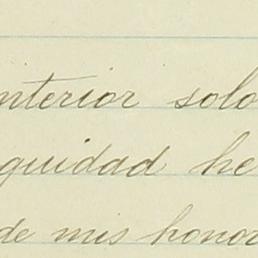 nterior solo
quidad he
de mis honor